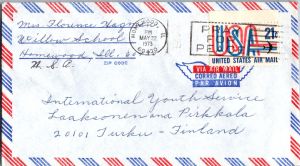 Mrs. Florence Hagne
Willow School
Homewood, Ill. 60
U.S.A.
ZIP CODE
PM
MAY 22
1973
60430
P
PE
USA
21c
UNITED STATES AIR MAIL
VIA AIR MAIL
CORREO AEREO
PAR AVION
International Youth Service
Laakeonen and Pirkkala
20101 Turku - Finland